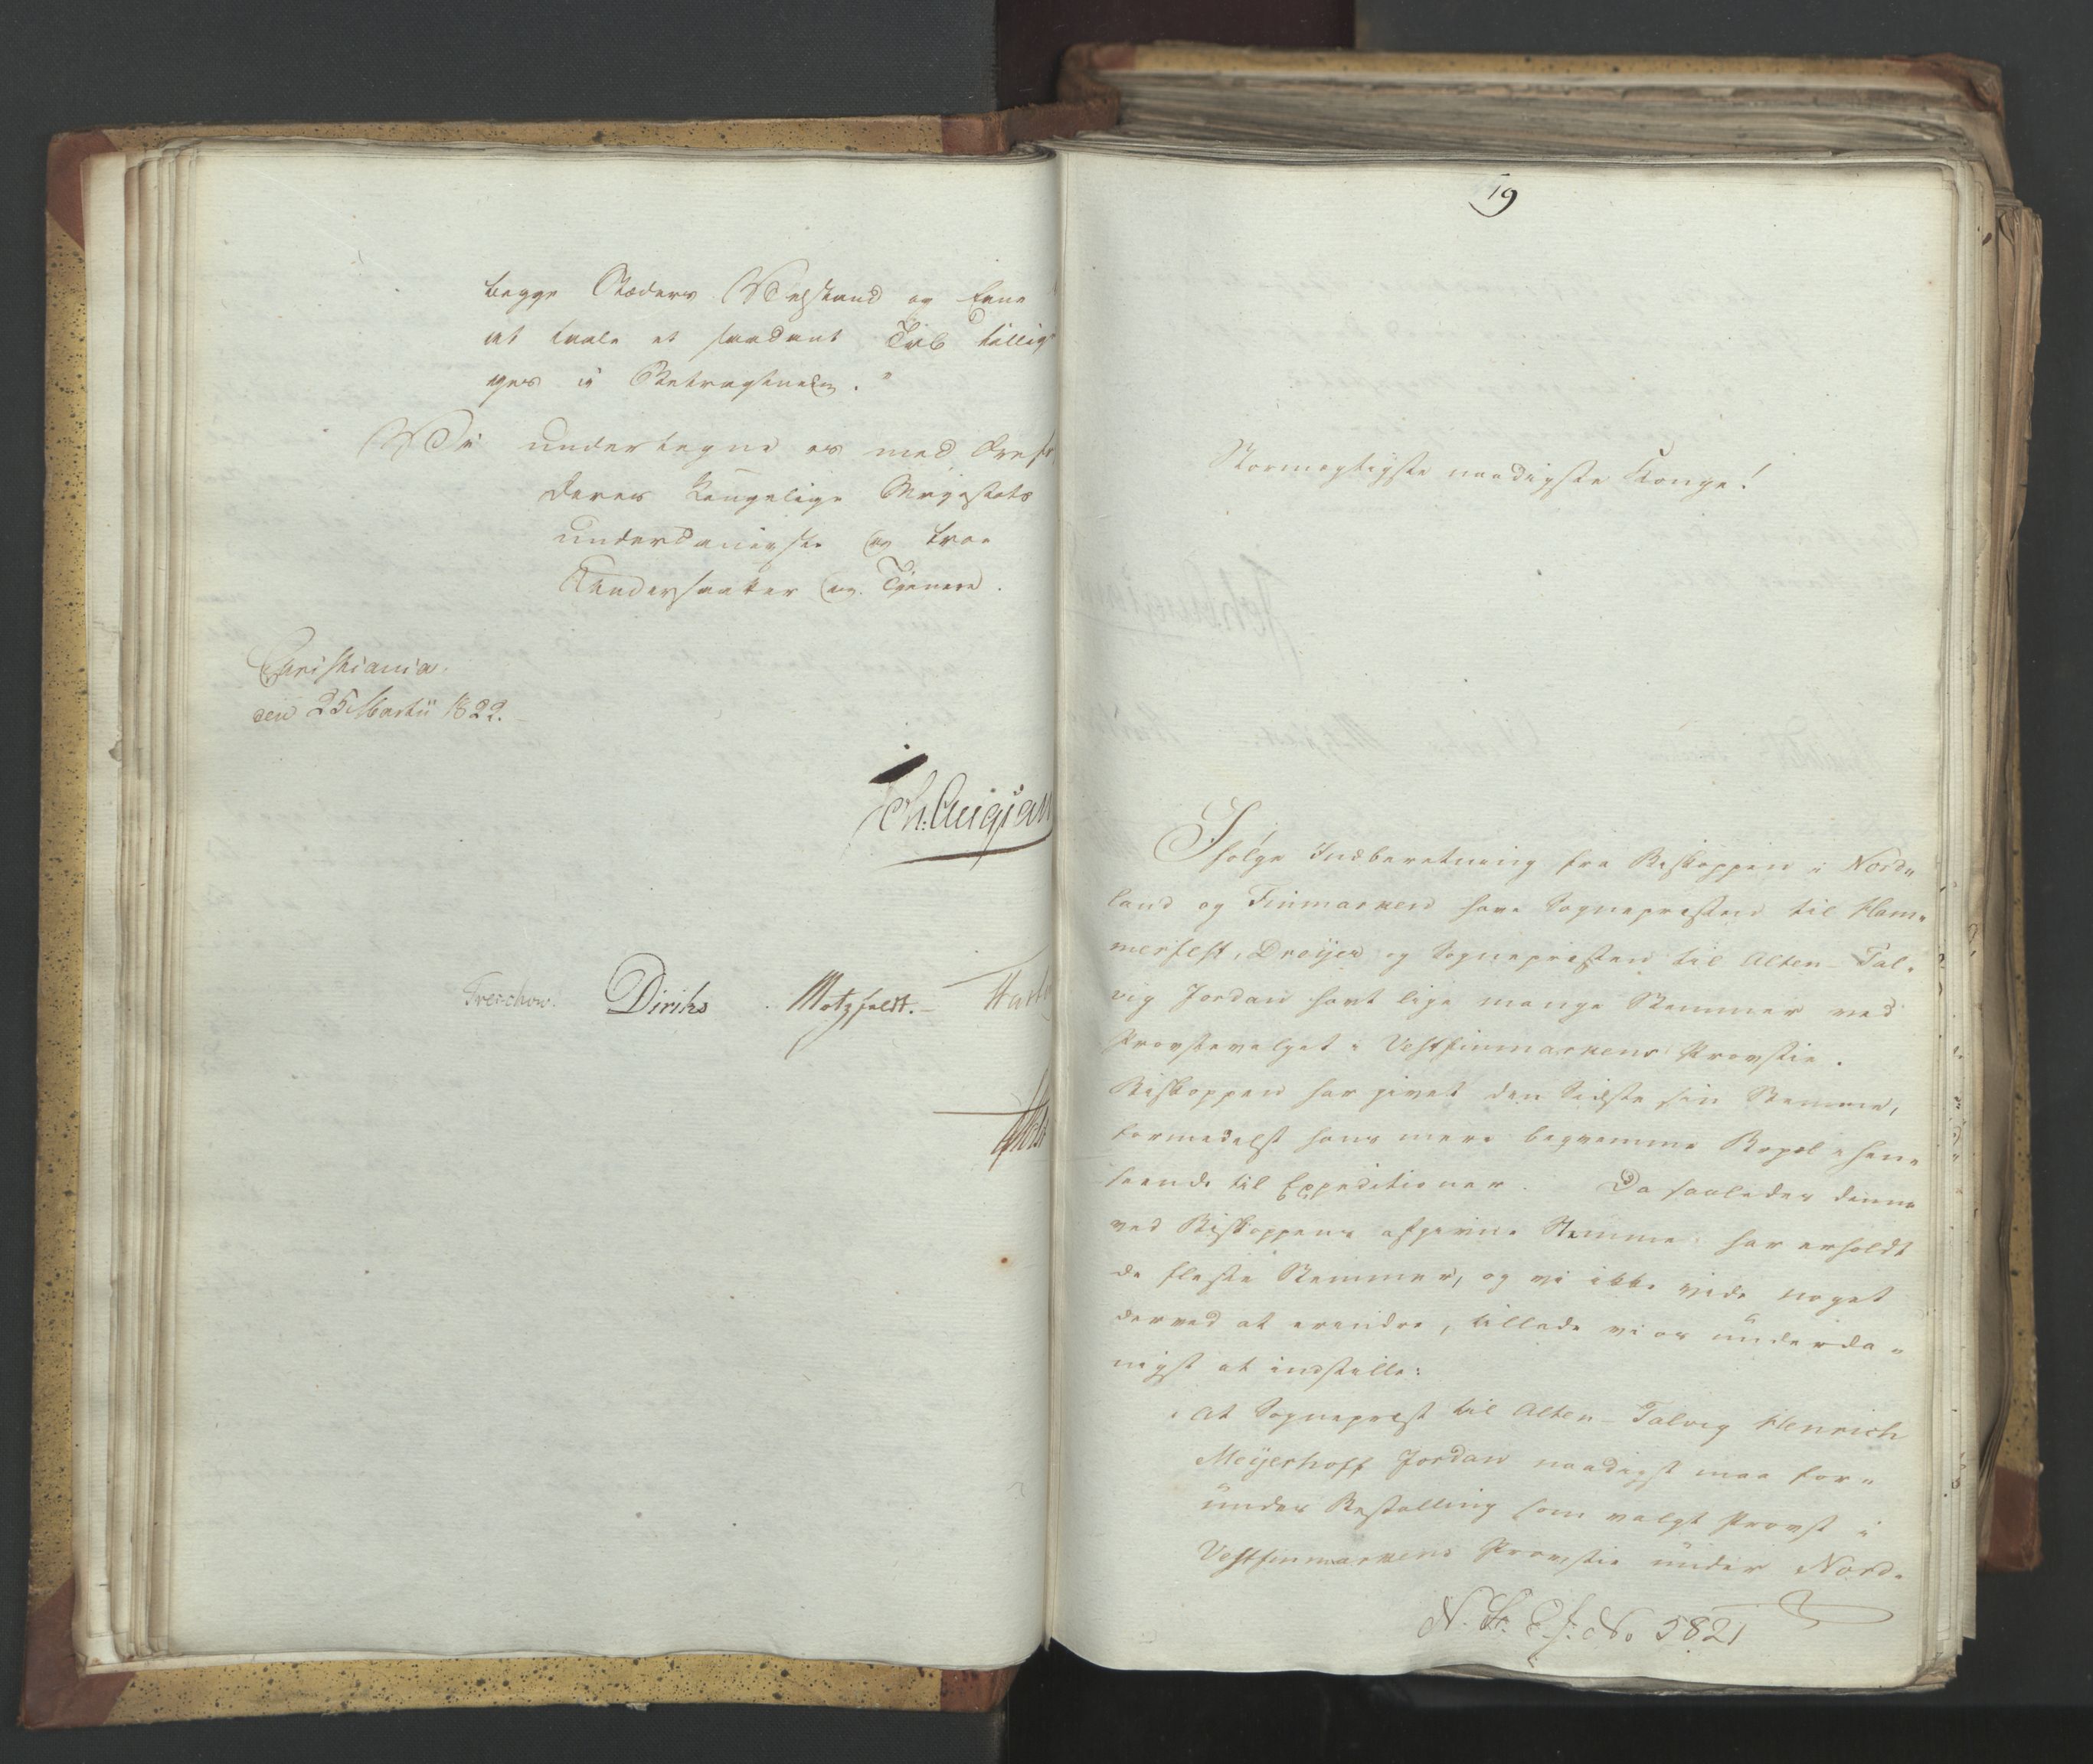 begge Stæders Velstand og Evne
at taale et saadant Tab tillig
ges i Betragtning."
Vi undertegne os med
Deres Kongelige Majestæts
underdanigste og troe
Undersaatter og Tjenere.
Christiania
den 25 Martii 1822.
Treschow. Diriks Motzfeldt.
19
Stormægtigste naadigste Konge!
Ifølge Indberetning fra Biskoppen i Nord„
land og Finmarken have Sognepresten til Ham„
merfest, Dreyer og Sognepresten til Alten-Tal„
vig Jordan havt lige mange Stemmer ved
Provstevalget i Vestfinmarkens Provstie.
Biskoppen har givet den Sidste sin Stemme,
formedelst hans mere beqvemme Bopæl i Hen„
seende til Expeditioner. Da saaledes denne
ved Biskoppens afgivne Stemme har erholdt
de fleste Stemmer, og vi ikke vide noget
derved at erindre, tillade vi os underda„
nigst at indstille:
„At Sogneprest til Alten-Talvig Henrich
Meyerhoff Jordan naadigst maa for„
undes Bestalling som valgt Provst i
Vestfinmarkens Provstie under Nord„
No 5821